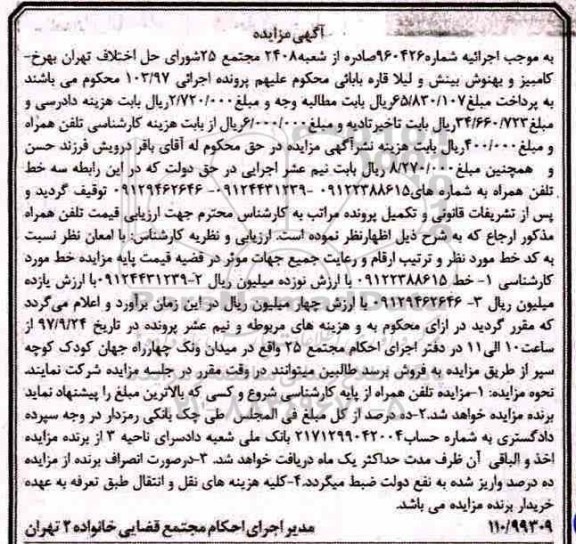 آگهی مزایده
به موجب اجرائیه شماره۹۶۰۴۲۶صادره از شعبه۲۴۰۸ مجتمع ۲۵شورای حل اختلاف تهران بهرخ-
کامبیز و بهنوش بینش و لیلا قاره بابائی محکوم علیهم پرونده اجرائی ۱۰۳/۹۷ محکوم می باشند
به پرداخت مبلغ۶۵/۸۳۰/۱۰۷ریال بابت مطالبه وجه و مبلغ۲/۷۲۰/۰۰۰ریال بابت هزینه دادرسی و
مبلغ۳۴/۶۶۰/۷۲۳ریال بابت تاخیر تادیه و مبلغ۶/۰۰۰/۰۰۰ریال از بابت هزینه کارشناسی تلفن همراه
و مبلغ۴۰۰/۰۰۰ریال بابت هزینه نشرآگهی مزایده در حق محکوم له آقای باقر درویش فرزند حسن
و همچنین مبلغ۸/۲۷۰/۰۰۰ ریال بابت نیم عشر اجرایی در حق دولت که در این رابطه سه خط
تلفن همراه به شماره های۰۹۱۲۲۳۸۸۶۱۵ -۰۹۱۲۴۴۳۱۲۳۹ -۰۹۱۲۹۴۶۲۶۴۶ توقیف گردید و
پس از تشریفات قانونی و تکمیل پرونده مراتب به کارشناس محترم جهت ارزیابی قیمت تلفن همراه
مذکور ارجاع که به شرح ذیل اظهارنظر نموده است. ارزیابی و نظریه کارشناس: با امعان نظر نسبت
به کد خط مورد نظر و ترتیب ارقام و رعایت جمیع جهات موثر در قضیه قیمت پایه مزایده خط مورد
کارشناسی ۱- خط ۰۹۱۲۲۳۸۸۶۱۵ با ارزش نوزده میلیون ریال ۲-۰۹۱۲۴۴۳۱۲۳۹با ارزش یازده
میلیون ریال ۳- ۰۹۱۲۹۴۶۲۶۴۶ با ارزش چهار میلیون ریال در این زمان برآورد و اعلام می‌گردد
که مقرر گردید در ازای محکوم به و هزینه های مربوطه و نیم عشر پرونده در تاریخ ۹۷/۹/۲۴ از
ساعت۱۰ الی۱۱ در دفتر اجرای احکام مجتمع ۲۵ واقع در میدان ونک چهارراه جهان کودک کوچه
سپر از طریق مزایده به فروش برسد طالبین میتوانند در وقت مقرر در جلسه مزایده شرکت نمایند.
نحوه مزایده: ۱-مزایده تلفن همراه از پایه کارشناسی شروع و کسی که بالاترین مبلغ را پیشنهاد نماید
برنده مزایده خواهد شد.۲-ده درصد از کل مبلغ فی المجلس طی چک بانکی رمزدار در وجه سپرده
دادگستری به شماره حساب۲۱۷۱۲۹۹۰۴۲۰۰۴ بانک ملی شعبه دادسرای ناحیه ۳ از برنده مزایده
اخذ و الباقی آن ظرف مدت حداکثر یک ماه دریافت خواهد شد. ۳-درصورت انصراف برنده از مزایده
ده درصد واریز شده به نفع دولت ضبط میگردد.۴-کلیه هزینه های نقل و انتقال طبق تعرفه به عهده
خریدار برنده مزایده می باشد.
۱۱۰/۹۹۳۰۹ مدیر اجرای احکام مجتمع قضایی خانواده ۲ تهران